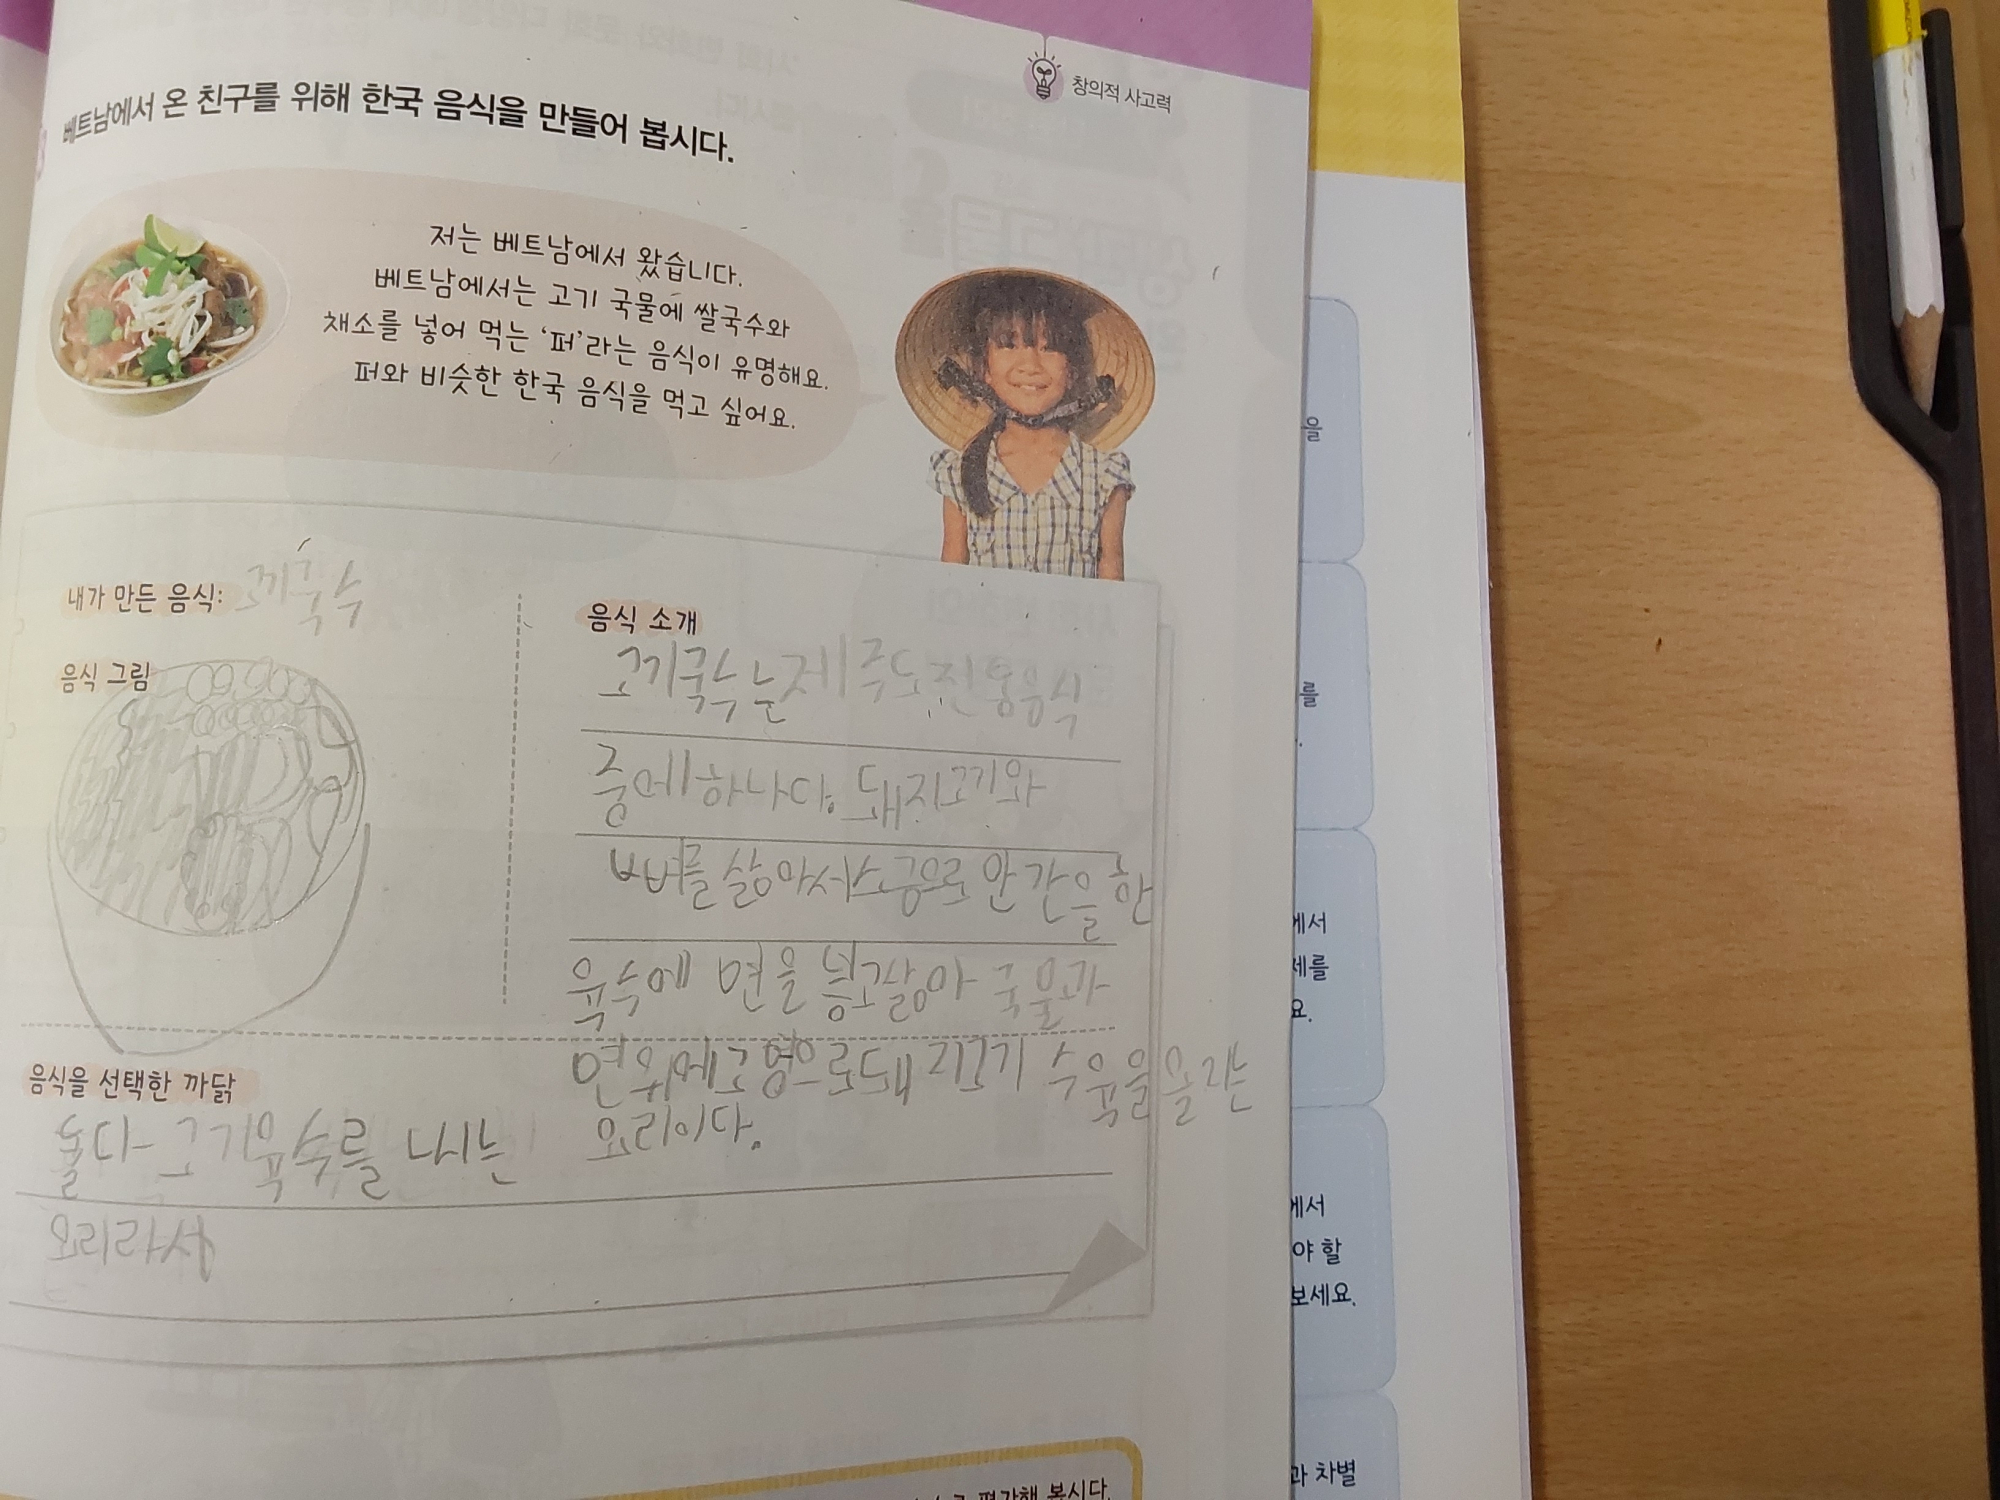 창의적 사고력
베트남에서 온 친구를 위해 한국 음식을 만들어 봅시다.
저는 베트남에서 왔습니다.
베트남에서는 고기 국물에 쌀국수와
채소를 넣어 먹는 '퍼'라는 음식이 유명해요.
퍼와 비슷한 한국 음식을 먹고 싶어요.
내가 만든 음식: 고기국수
음식 그림
음식 소개
고기국수는 제주도 전통음식
중에 하나다. 돼지고기와
뼈를 삶아서 소금으로 안 간을 한
육수에 면을 넣고 삶아 국물과
면 위에 고명으로 돼지고기 수육을 올리는
요리이다.
음식을 선택한 까닭
둘다 고기육수를 내는
요리라서
을
를
에서
제를
요.
에서
야 할
보세요.
과 차별
평가해 봅시다.